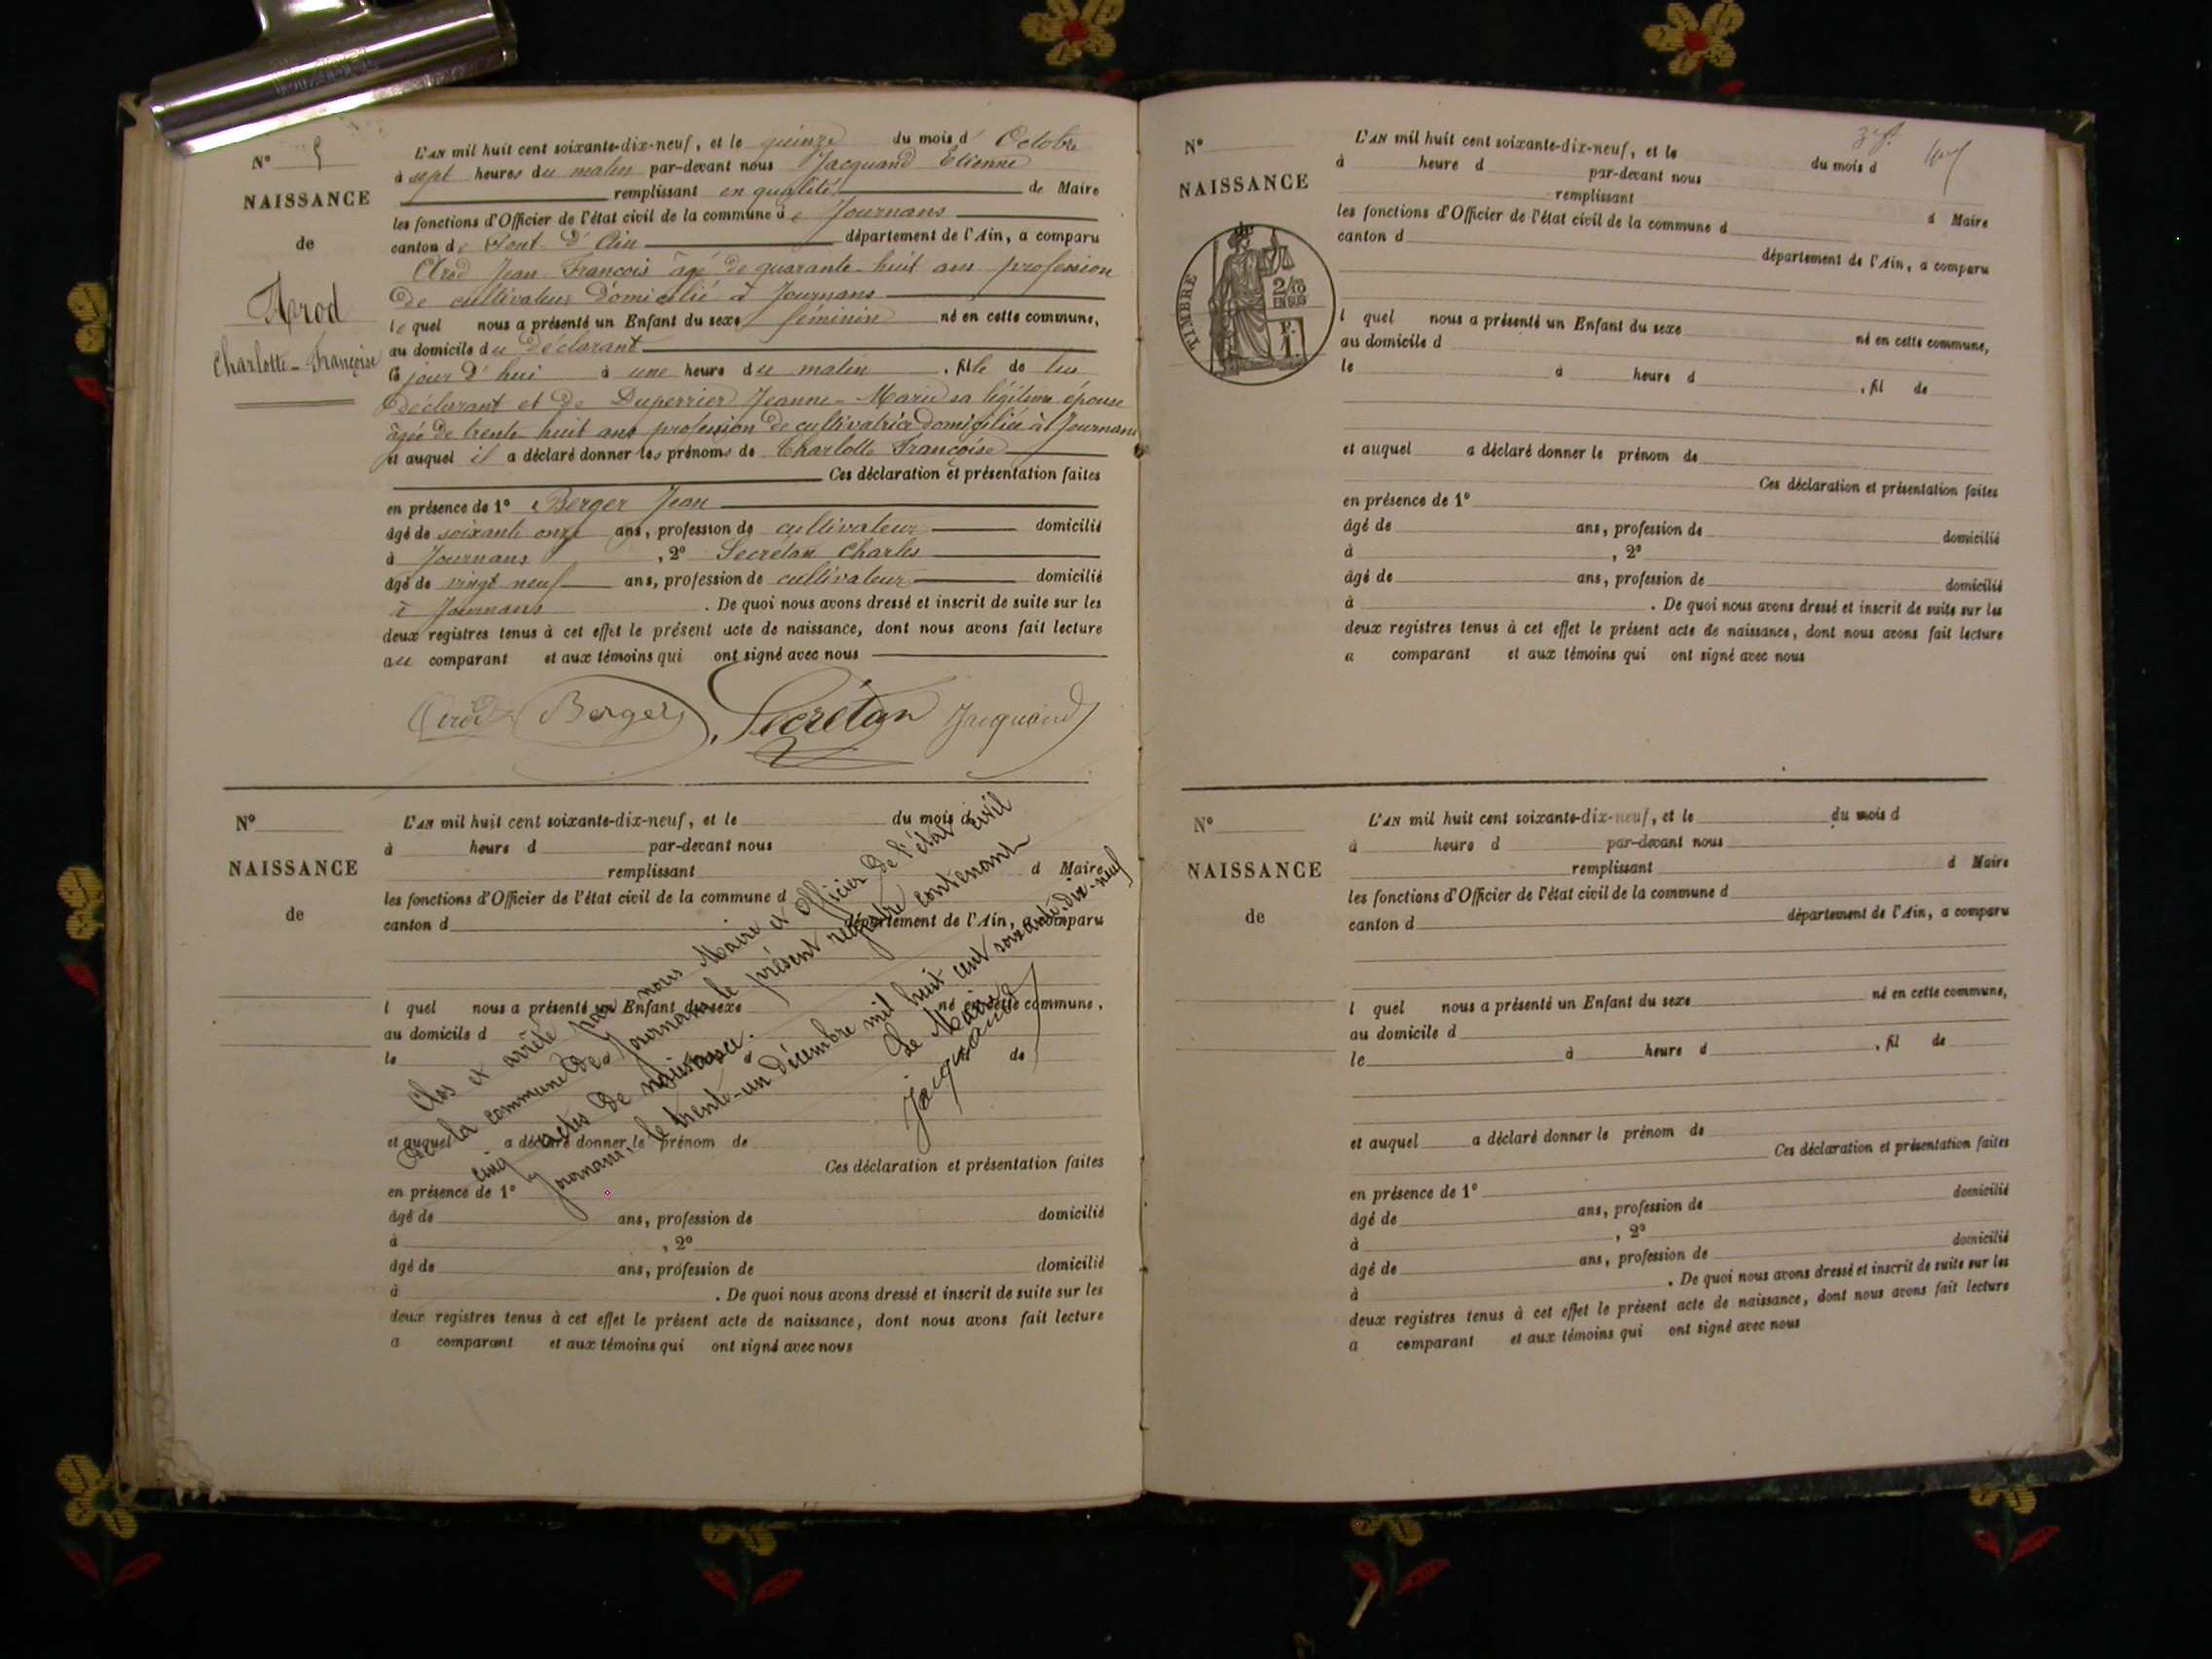 N° 5
NAISSANCE
de
Arod
Charlotte-Françoise
L'AN mil huit cent soixante-dix-neuf, et le quinze du mois d' Octobre
à sept heures du matin par-devant nous Jacquand Etienne
remplissant en qualité de Maire
les fonctions d'Officier de l'état civil de la commune de Journans
canton de Pont d'Ain département de l'Ain, a comparu
Arod Jean François âgé de quarante-huit ans profession
de cultivateur domicilié à Journans
lequel nous a présenté un Enfant du sexe féminin né en cette commune,
au domicile du déclarant
le jour d'hui à une heure du matin, fille de lui
déclarant et de Duperrier Jeanne-Marie sa légitime épouse
âgée de trente-huit ans profession de cultivatrice domiciliée à Journans
et auquel il a déclaré donner les prénoms de Charlotte Françoise
Ces déclaration et présentation faites
en présence de 1° Berger Jean
âgé de soixante onze ans, profession de cultivateur domicilié
à Journans, 2° Secrétan Charles
âgé de vingt neuf ans, profession de cultivateur domicilié
à Journans. De quoi nous avons dressé et inscrit de suite sur les
deux registres tenus à cet effet le présent acte de naissance, dont nous avons fait lecture
au comparant et aux témoins qui ont signé avec nous
Arod Berger Secrétan Jacquand
N°
NAISSANCE
de
L'AN mil huit cent soixante-dix-neuf, et le du mois d
à heure d par-devant nous
remplissant d Maire
les fonctions d'Officier de l'état civil de la commune d
canton d département de l'Ain, a comparu
l quel nous a présenté un Enfant du sexe né en cette commune,
au domicile d
le à heure d , fil de
et auquel a déclaré donner le prénom de
Ces déclaration et présentation faites
en présence de 1°
âgé de ans, profession de domicilié
à , 2°
âgé de ans, profession de domicilié
à . De quoi nous avons dressé et inscrit de suite sur les
deux registres tenus à cet effet le présent acte de naissance, dont nous avons fait lecture
a comparant et aux témoins qui ont signé avec nous
Clos et arrêté par nous Maire et Officier de l'état civil
de la commune de Journans le présent registre contenant
cinq actes de naissance.
Journans, le trente-un décembre mil huit cent soixante-dix-neuf
Le Maire
Jacquand
N°
NAISSANCE
de
TIMBRE
2/10
EN SUS
L'AN mil huit cent soixante-dix-neuf, et le du mois d
à heure d par-devant nous
remplissant d Maire
les fonctions d'Officier de l'état civil de la commune d
canton d département de l'Ain, a comparu
l quel nous a présenté un Enfant du sexe né en cette commune,
au domicile d
le à heure d , fil de
et auquel a déclaré donner le prénom de
Ces déclaration et présentation faites
en présence de 1°
âgé de ans, profession de domicilié
à , 2°
âgé de ans, profession de domicilié
à . De quoi nous avons dressé et inscrit de suite sur les
deux registres tenus à cet effet le présent acte de naissance, dont nous avons fait lecture
a comparant et aux témoins qui ont signé avec nous
N°
NAISSANCE
de
L'AN mil huit cent soixante-dix-neuf, et le du mois d
à heure d par-devant nous
remplissant d Maire
les fonctions d'Officier de l'état civil de la commune d
canton d département de l'Ain, a comparu
l quel nous a présenté un Enfant du sexe né en cette commune,
au domicile d
le à heure d , fil de
et auquel a déclaré donner le prénom de
Ces déclaration et présentation faites
en présence de 1°
âgé de ans, profession de domicilié
à , 2°
âgé de ans, profession de domicilié
à . De quoi nous avons dressé et inscrit de suite sur les
deux registres tenus à cet effet le présent acte de naissance, dont nous avons fait lecture
a comparant et aux témoins qui ont signé avec nous